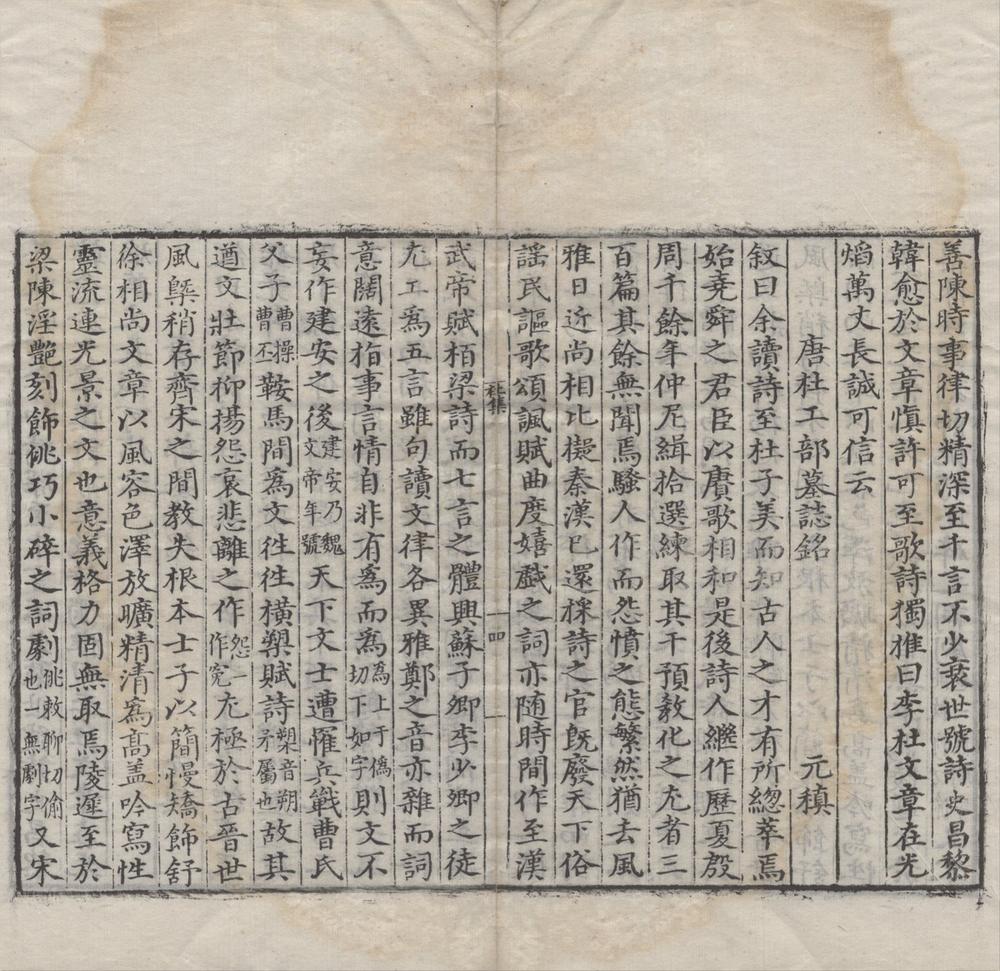 善陳時事律切精深至千言不少衰世號詩史昌黎
韓愈於文章愼許可至歌詩獨推曰李杜文章在光
熖萬丈長誠可信云
唐杜工部墓誌銘 元稹
叙曰余讀詩至杜子美而知古人之才有所緫萃焉
始堯舜之君臣以賡歌相和是後詩人繼作歷夏殷
周千餘年仲尼緝拾選練取其干預教化之尤者三
百篇其餘無聞焉騷人作而怨憤之態繁然猶去風
雅日近尚相比擬秦漢已還採詩之官旣廢天下俗
謡民謳歌頌諷賦曲度嬉戱之詞亦随時間作至漢
杜集 四
武帝賦栢梁詩而七言之體興蘇子卿李少卿之徒
尤工爲五言雖句讀文律各異雅鄭之音亦雜而詞
意闊遠指事言情自非有爲而爲爲上于僞切下如字則文不
妄作建安之後建安乃魏文帝年號天下文士遭罹兵戰曹氏
父子曹操曹丕鞍馬間爲文徃徃橫槊賦詩槊音朔矛屬也故其
遒文壯節抑揚怨哀悲離之作怨一作寃尤極於古晉世
風槩稍存齊宋之間教失根本士子以簡慢矯飾舒
徐相尚文章以風容色澤放曠精清爲髙盖吟寫性
靈流連光景之文也意義格力固無取焉陵遲至於
梁陳淫艷刻飾佻巧小碎之詞劇佻敕聊切偷也一無劇字又宋